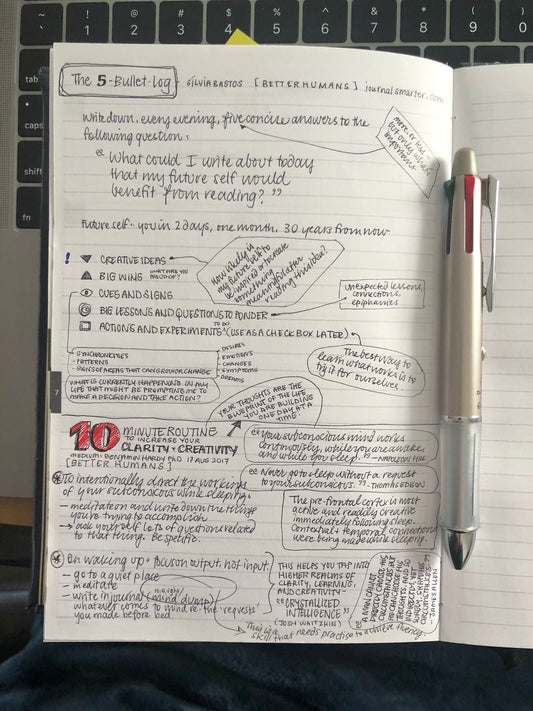 ~ ! @ # $ % ^ &
` 1 2 3 4 5 6 7
tab
caps
shift
fn
The 5-Bullet-Log - SÍLVIA BASTOS [BETTER HUMANS] journalsmarter.com
write down, every evening, five concise answers to the
following question:
more, or less
but only what's
important
"What could I write about today
that my future self would
benefit from reading?"
Future self - you in 2 days, one month, 30 years from now
! ▼ CREATIVE IDEAS
How likely is
my future self to
be inspired or to create
something
meaningful after
reading this idea?
▲ BIG WINS WHAT ARE YOU
PROUD OF?
CUES AND SIGNS
unexpected lessons,
connections,
epiphanies
BIG LESSONS AND QUESTIONS TO PONDER
ACTIONS AND EXPERIMENTS TO DO (USE AS A CHECK BOX LATER)
The best way to
learn what works is to
try it for ourselves
- SYNCHRONICITIES
- PATTERNS
- SIGNS OF AREAS THAT CAN GROW OR CHANGE
- DESIRES
- EMOTIONS
- CHANGES
- SYMPTOMS
- DREAMS
WHAT IS CURRENTLY HAPPENING IN MY
LIFE THAT MIGHT BE PROMPTING ME TO
MAKE A DECISION AND TAKE ACTION?
7
YOUR THOUGHTS ARE THE
BLUEPRINT OF THE LIFE
YOU ARE BUILDING
ONE DAY AT A
TIME.
10 MINUTE ROUTINE
TO INCREASE YOUR
CLARITY + CREATIVITY
MEDIUM - BENJAMIN HARDY PhD 17 AUG 2017
[BETTER HUMANS]
"Your subconscious mind works
continuously, while you are awake,
and while you sleep." - NAPOLEON HILL
"Never go to sleep without a request
to your subconscious." - THOMAS EDISON
* To intentionally direct the workings
of your subconscious while sleeping:
- meditate on and write down the things
you're trying to accomplish
→ ask yourself lots of questions related
to that thing. Be specific.
The pre-frontal cortex is most
active and readily creative
immediately following sleep.
Contextual + temporal connections
were being made while sleeping.
* On waking up → focus on output, not input.
- go to a quiet place
- meditate
- write in journal (mind dump)
whatever comes to mind re: the 'requests'
you made before bed.
THIS HELPS YOU TAP INTO
HIGHER REALMS OF
CLARITY, LEARNING,
AND CREATIVITY -
"CRYSTALLIZED
INTELLIGENCE"
(JOSH WAITZKIN)
"A MAN CANNOT
DIRECTLY CHOOSE HIS
CIRCUMSTANCES, BUT
HE CAN CHOOSE HIS
THOUGHTS, AND SO
INDIRECTLY, YET
SURELY, SHAPE HIS
CIRCUMSTANCES."
- JAMES ALLEN
This is a
skill that needs practise to achieve fluency.